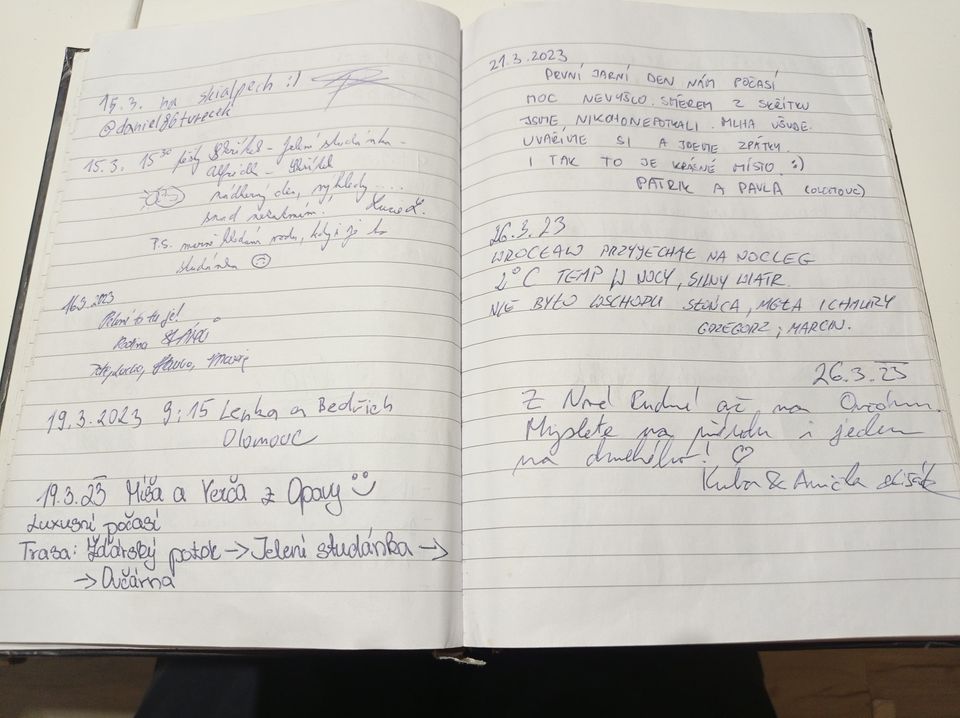 15.3. na skialpech :)
@daniel86turecek
15.3. 15³⁰ Skřítek - Jelení studánka -
Alfrédka - Skřítek
nádherný den, výhledy....
P.S. marně hledám vodu, když je to
studánka ☹
16.3.2023
Pěkné to tu je!
Rodina
19.3.2023 9:15 Lenka a Bedřich
Olomouc
19.3.23 Míša a Verča z Opavy
Luxusní počasí
Trasa: Žďárský potok → Jelení studánka →
→ Ovčárna
21.3.2023
PRVNÍ JARNÍ DEN NÁM POČASÍ
MOC NEVYŠLO. SMĚREM Z SKŘÍTKU
JSME NIKOHO NEPOTKALI. MLHA VŠUDE.
UVAŘÍME SI A JDEME ZPÁTKY.
I TAK TO JE KRÁSNÉ MÍSTO. :)
PATRIK A PAVLA (OLOMOUC)
26.3.23
WROCŁAW PRZYJECHAŁ NA NOCLEG
2°C TEMP W NOCY, SILNY WIATR.
NIE BYŁO WSCHODU SŁOŃCA, MGŁA I CHMURY
GRZEGORZ; MARCIN.
26.3.23
Z Nové Rudné až na Ovčárnu.
Myslete na přírodu i jeden
na druhého! ♡
Kuba & Anička